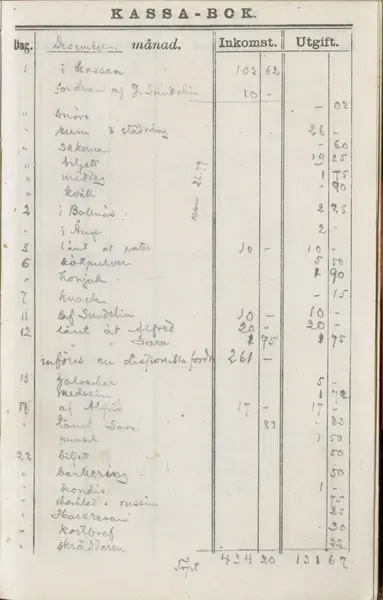 KASSA-BOK.
Dag. December månad. Inkomst. Utgift.
1 i Kassan 102 62
" fordran af J. Sundelin 10 -
" Snöre - 02
" hum & städning 26 -
" Sakeman - 60
" biljett 19 25
" middag 1 75
" kväll - 90
2 i Bollnäs 2 25
" i Ånge 2 -
5 lånt af 10 - 10 -
6 5 50
" konjak 1 90
7 knäck - 15
11 af Sundelin 10 - 10 -
12 lånt åt Alfred 20 - 20 -
" " Sara 1 75 1 75
införes nu disponibla 261 -
13 galoscher 5 -
" medecin 1 72
af Alfred 17 - 17 -
" lånat Sara 83 83
" punsch 1 50
22 biljett 50
" barkering 50
" kondis 1 -
" choklad & russin 75
" 25
" kortbref 20
" skräddaren 25
434 20 131 67